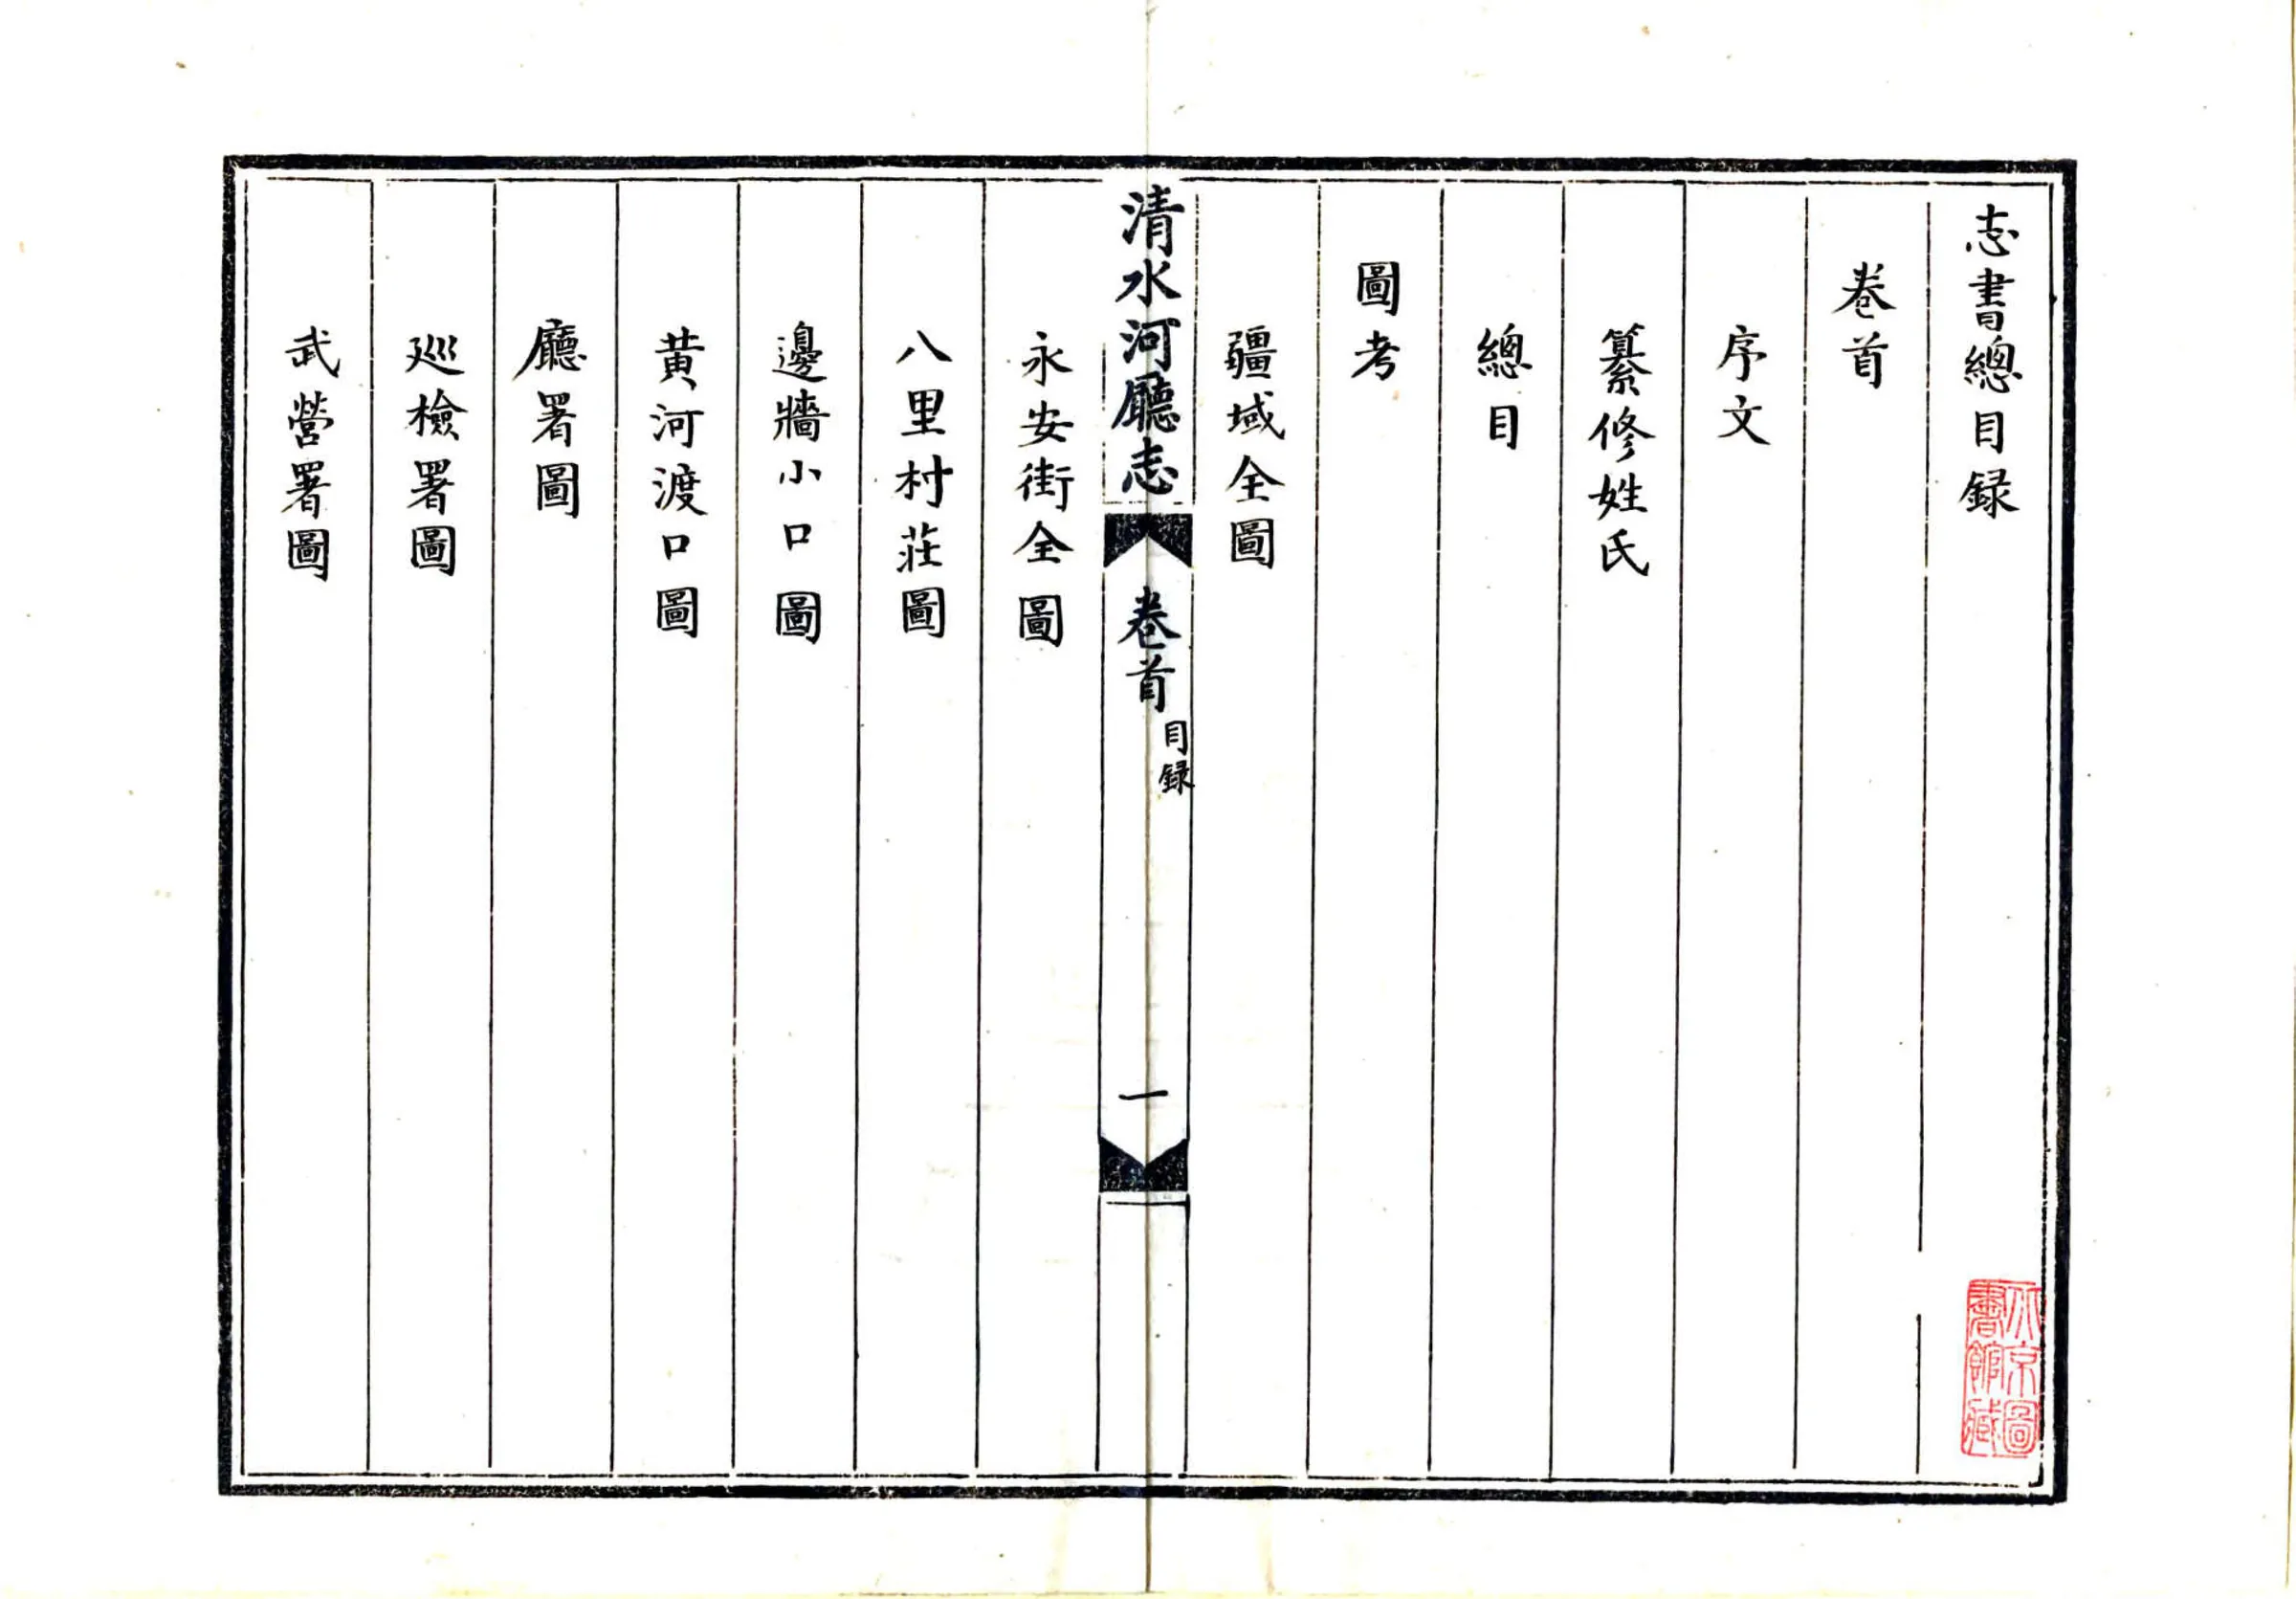 志書總目録
卷首
序文
纂修姓氏
總目
圖考
疆域全圖
清水河廳志
卷首
目録
一
永安街全圖
八里村莊圖
邊牆小口圖
黄河渡口圖
廳署圖
巡檢署圖
武營署圖
北京圖
書館藏